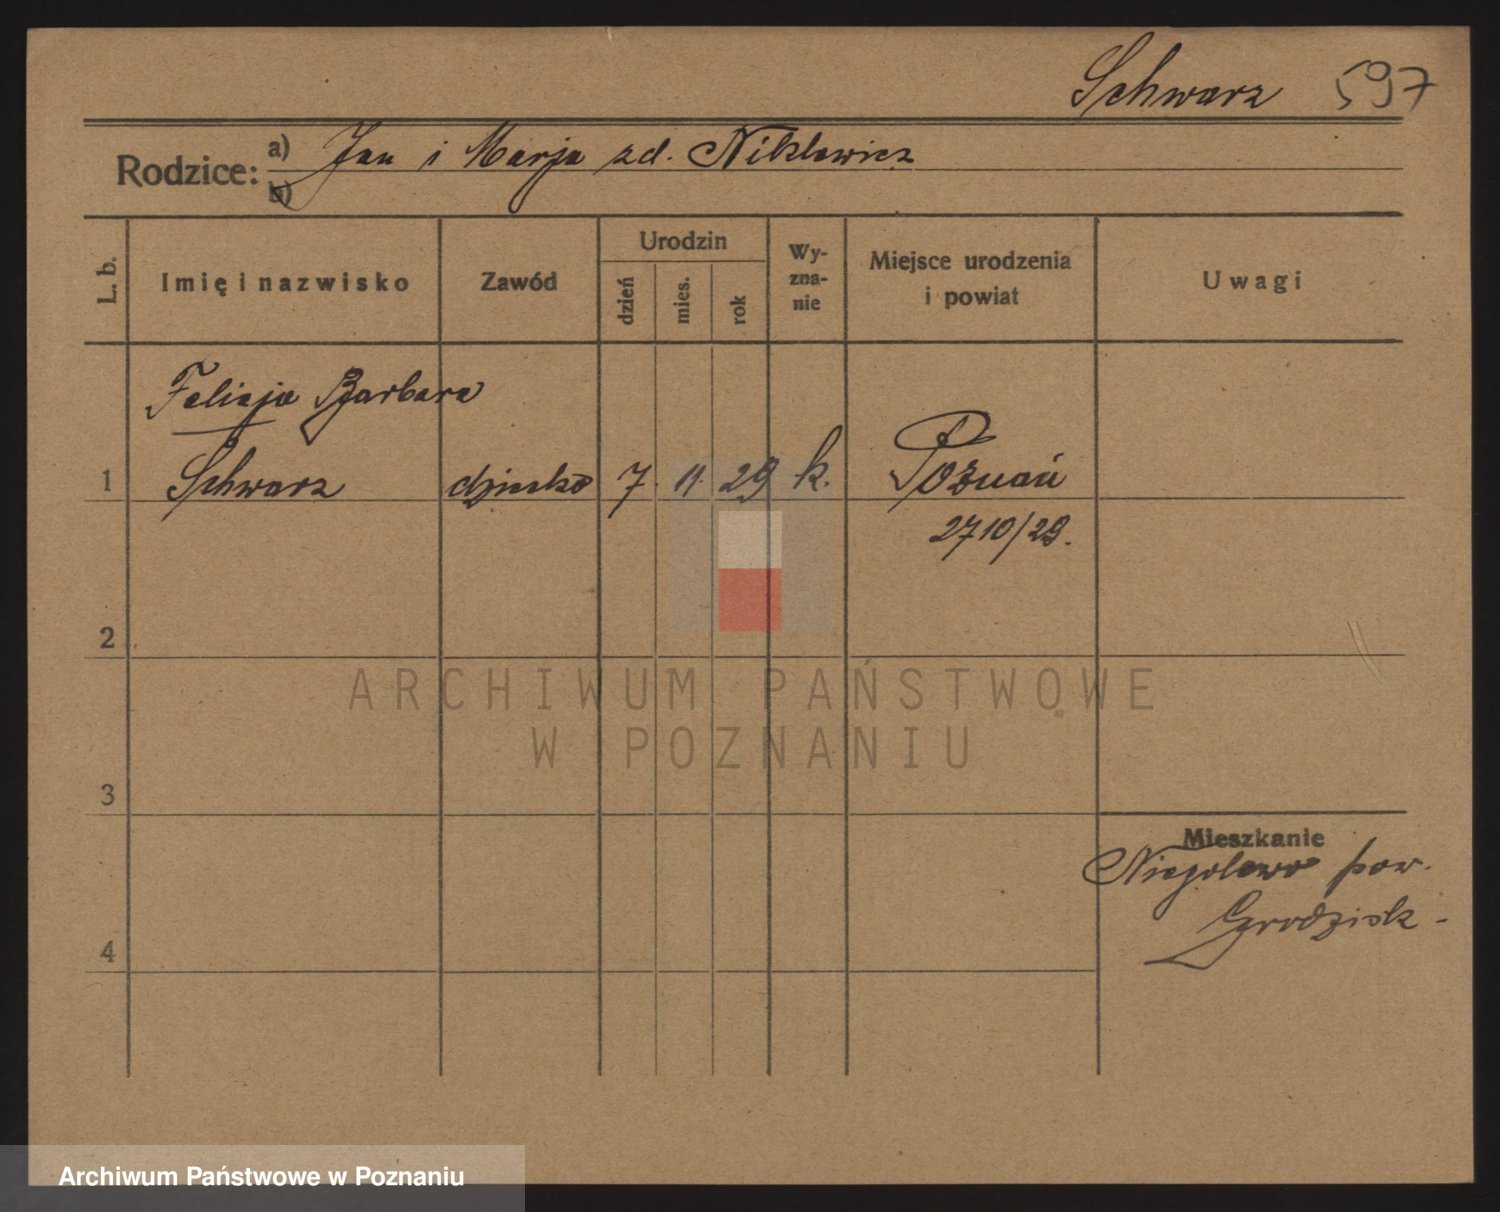 Schwarz 597
Rodzice: a) Jan i Marja zd. Niklewicz
b)
L. b. Imię i nazwisko Zawód Urodzin dzień mies. rok Wy-zna-nie Miejsce urodzenia i powiat Uwagi
Felicja Barbara
1 Schwarz dziecko 7. 11. 29 k. Poznań
2710/29.
2
ARCHIWUM PAŃSTWOWE
W POZNANIU
3
Mieszkanie
Niegolewo pow.
Grodzisk -
4
Archiwum Państwowe w Poznaniu